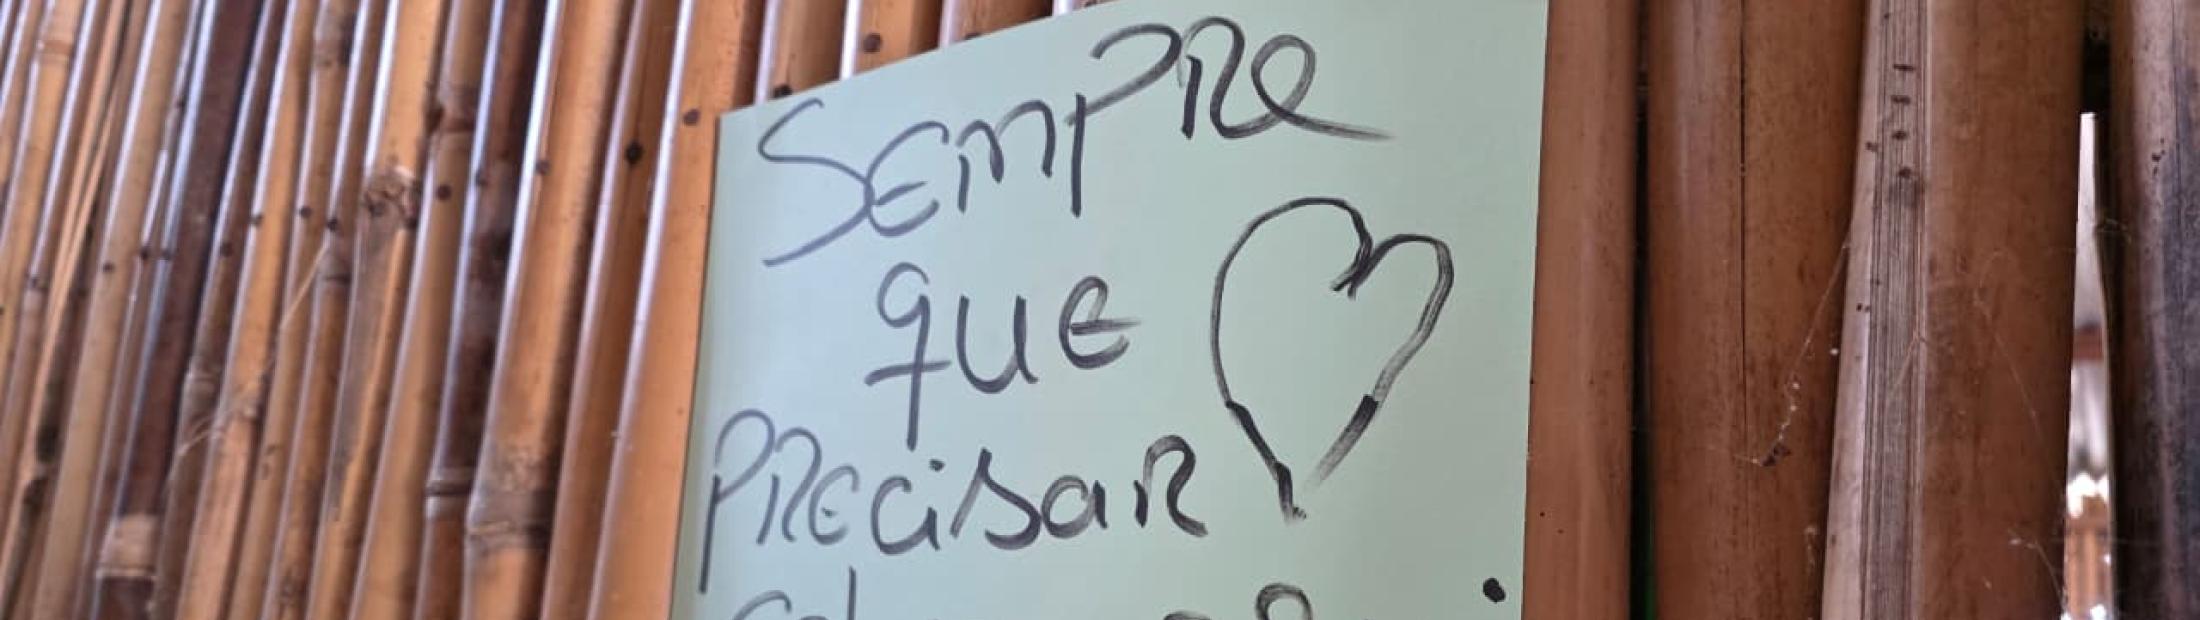 SEMPRE
que
PRECisaR